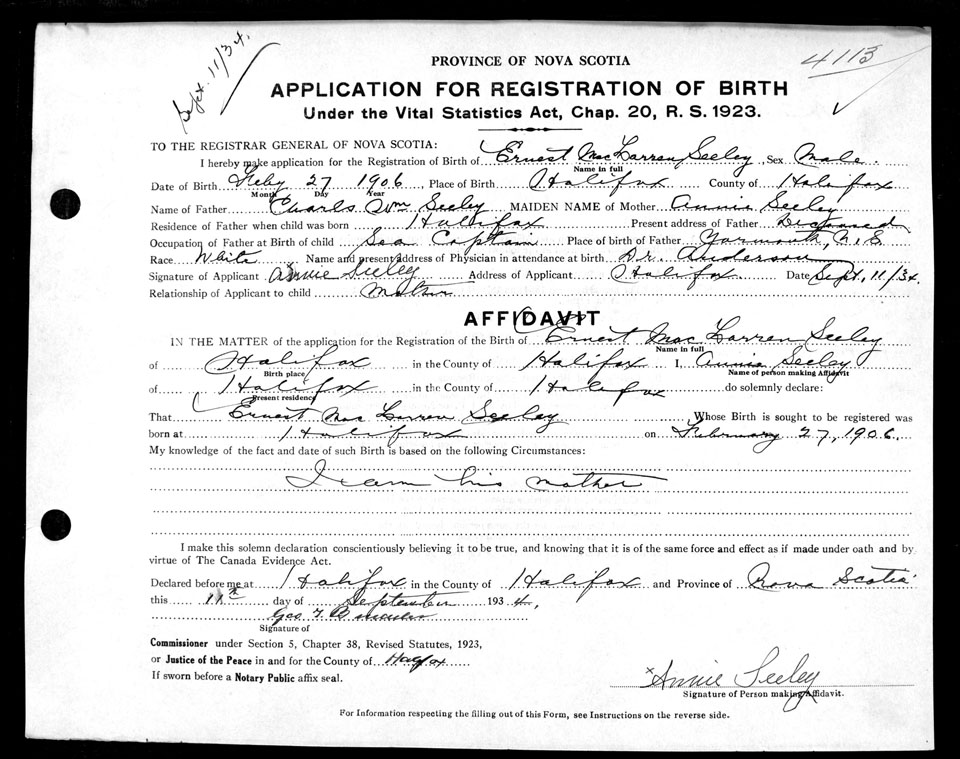 Sept. 11/34.
4113
PROVINCE OF NOVA SCOTIA
APPLICATION FOR REGISTRATION OF BIRTH
Under the Vital Statistics Act, Chap. 20, R. S. 1923.
TO THE REGISTRAR GENERAL OF NOVA SCOTIA:
I hereby make application for the Registration of Birth of Ernest MacLarren Seeley Sex Male
Name in full
Date of Birth Feby 27 1906 Place of Birth Halifax County of Halifax
Month Day Year
Name of Father Charls Wm Seeley MAIDEN NAME of Mother Annie Seeley
Residence of Father when child was born Halifax Present address of Father Deceased
Occupation of Father at Birth of child Sea Captain Place of birth of Father Yarmouth, N.S.
Race White Name and present address of Physician in attendance at birth Dr. Anderson
Signature of Applicant Annie Seeley Address of Applicant Halifax Date Sept. 11/34.
Relationship of Applicant to child Mother
AFFIDAVIT
IN THE MATTER of the application for the Registration of the Birth of Ernest Mac Larren Seeley
Name in full
of Halifax in the County of Halifax I, Annie Seeley
Birth place Name of person making Affidavit
of Halifax in the County of Halifax do solemnly declare:
Present residence
That Ernest Mac Larren Seeley Whose Birth is sought to be registered was
born at Halifax on February 27, 1906.
My knowledge of the fact and date of such Birth is based on the following Circumstances:
I am his mother
I make this solemn declaration conscientiously believing it to be true, and knowing that it is of the same force and effect as if made under oath and by
virtue of The Canada Evidence Act.
Declared before me at Halifax in the County of Halifax and Province of Nova Scotia
this 11th day of September 1934,
Geo
Signature of
Commissioner under Section 5, Chapter 38, Revised Statutes, 1923,
or Justice of the Peace in and for the County of Halifax
If sworn before a Notary Public affix seal.
x Annie Seeley
Signature of Person making Affidavit.
For Information respecting the filling out of this Form, see Instructions on the reverse side.